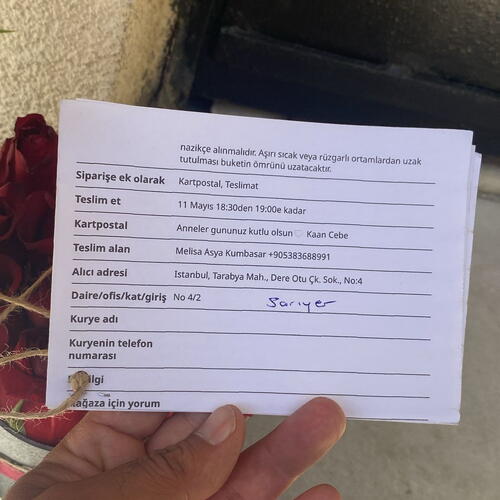 nazikçe alınmalıdır. Aşırı sıcak veya rüzgarlı ortamlardan uzak
tutulması buketin ömrünü uzatacaktır.
Siparişe ek olarak Kartpostal, Teslimat
Teslim et 11 Mayıs 18:30den 19:00e kadar
Kartpostal Anneler gununuz kutlu olsun♡ Kaan Cebe
Teslim alan Melisa Asya Kumbasar +905383688991
Alıcı adresi Istanbul, Tarabya Mah., Dere Otu Çk. Sok., No:4
Daire/ofis/kat/giriş No 4/2 Sarıyer
Kurye adı
Kuryenin telefon
numarası
için yorum